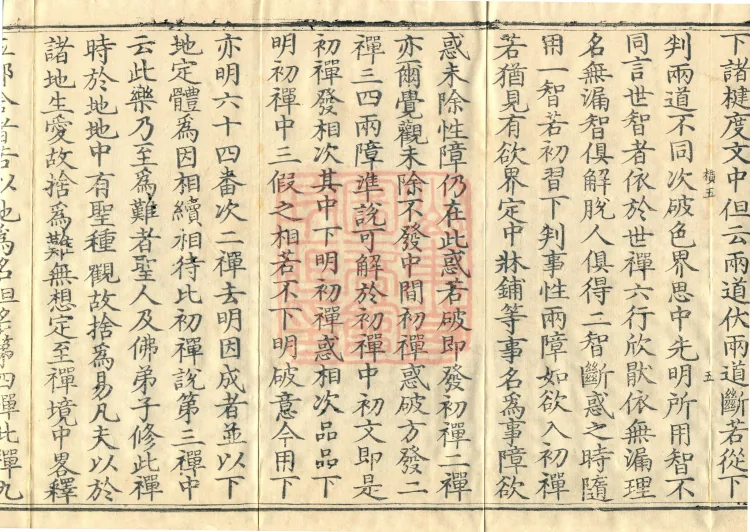 下諸揵度文中但云兩道伏兩道斷若從下
判兩道不同次破色界思中先明所用智不
同言世智者依於世禪六行欣猒依無漏理
名無漏智俱解脫人俱得二智斷惑之時隨
用一智若初習下判事性兩障如欲入初禪
若猶見有欲界定中牀鋪等事名爲事障欲
惑未除性障仍在此惑若破即發初禪二禪
亦爾覺觀未除不發中間初禪惑破方發二
禪三四兩障準說可解於初禪中初文即是
初禪發相次其中下明初禪惑相次品品下
明初禪中三假之相若不下明破意今用下
亦明六十四番次二禪去明因成者並以下
地定體爲因相續相待比初禪說第三禪中
云此樂乃至爲難者聖人及佛弟子修此禪
時於地地中有聖種觀故捨爲易凡夫以於
諸地生愛故捨爲難無想定至禪境中畧釋
以地爲名但名第四禪此禪九